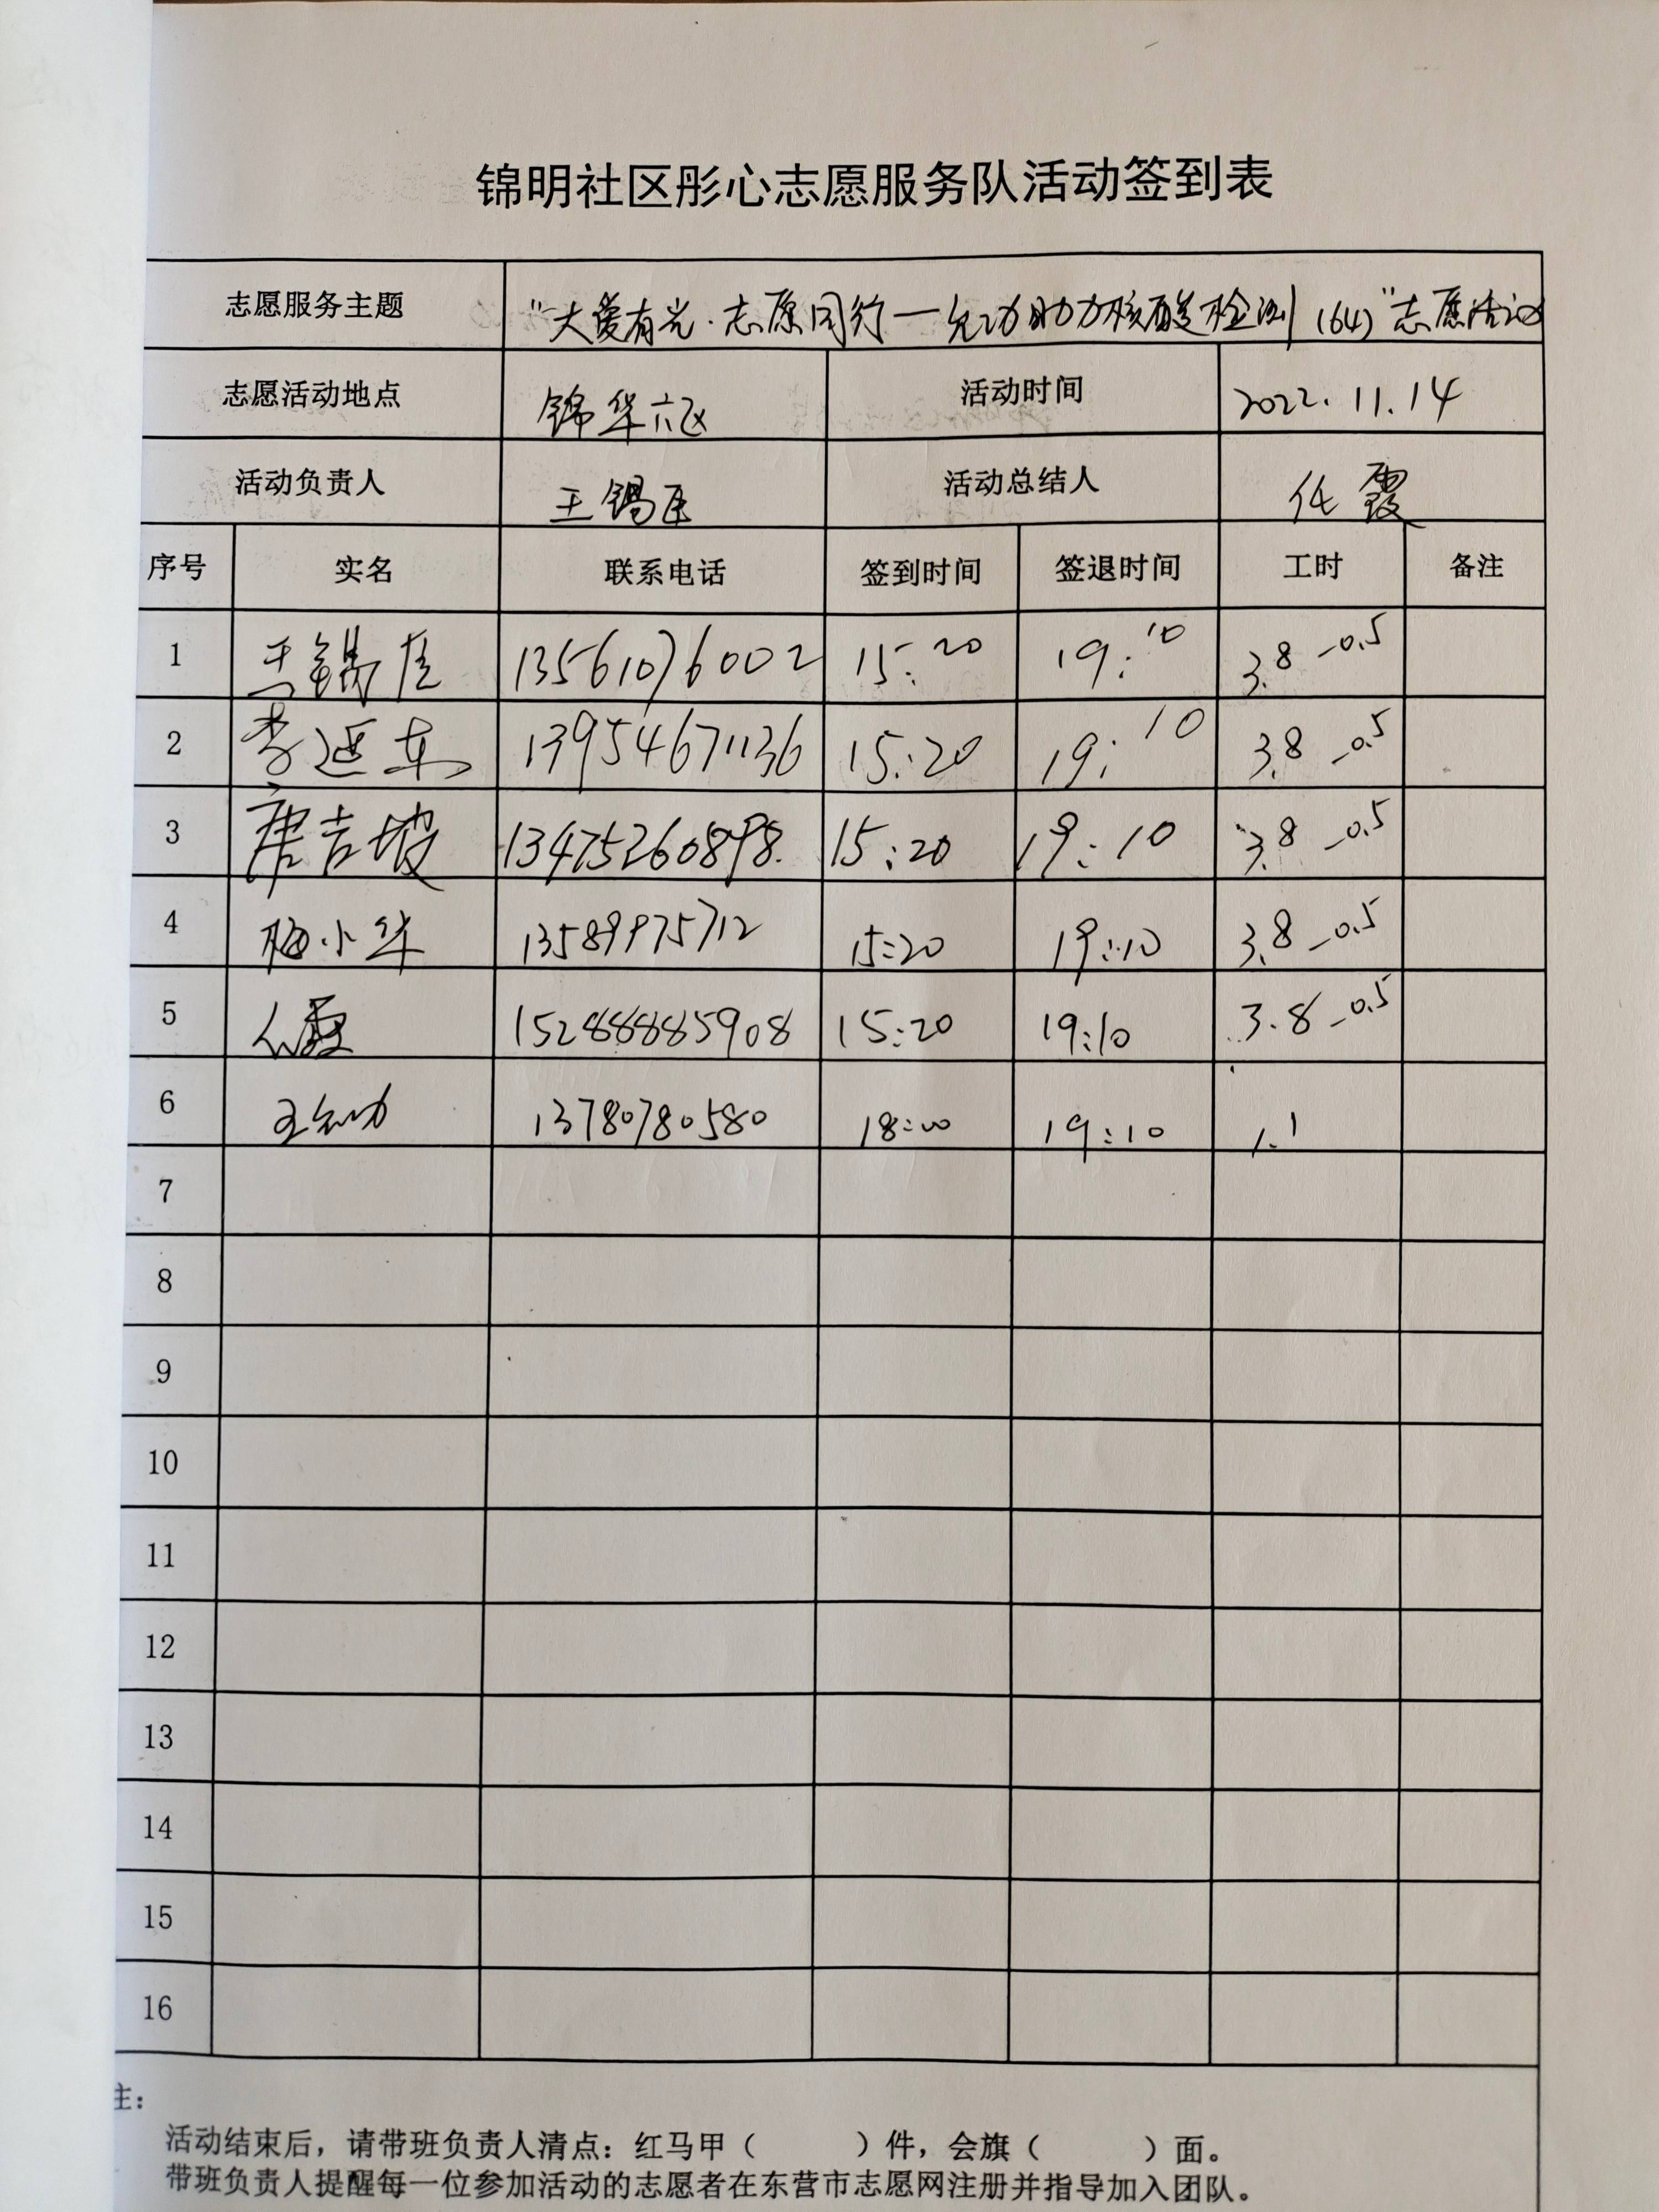 锦明社区彤心志愿服务队活动签到表
志愿服务主题 "大爱有光·志愿同行一 助力核酸检测(64)"志愿活动
志愿活动地点 锦华六区 活动时间 2022.11.14
活动负责人 王锡臣 活动总结人 任霞
序号 实名 联系电话 签到时间 签退时间 工时 备注
1 王锡臣 13561076002 15:20 19:10 3.8 -0.5
2 李延东 13954671136 15:20 19:10 3.8 -0.5
3 唐吉坡 13475260898. 15:20 19:10 3.8 -0.5
4 梅小华 13589975712 15:20 19:10 3.8 -0.5
5 任霞 15288885908 15:20 19:10 3.8 -0.5
6 王 13780780580 18:00 19:10 1.1
7
8
9
10
11
12
13
14
15
16
主:
活动结束后，请带班负责人清点：红马甲（ ）件，会旗（ ）面。
带班负责人提醒每一位参加活动的志愿者在东营市志愿网注册并指导加入团队。